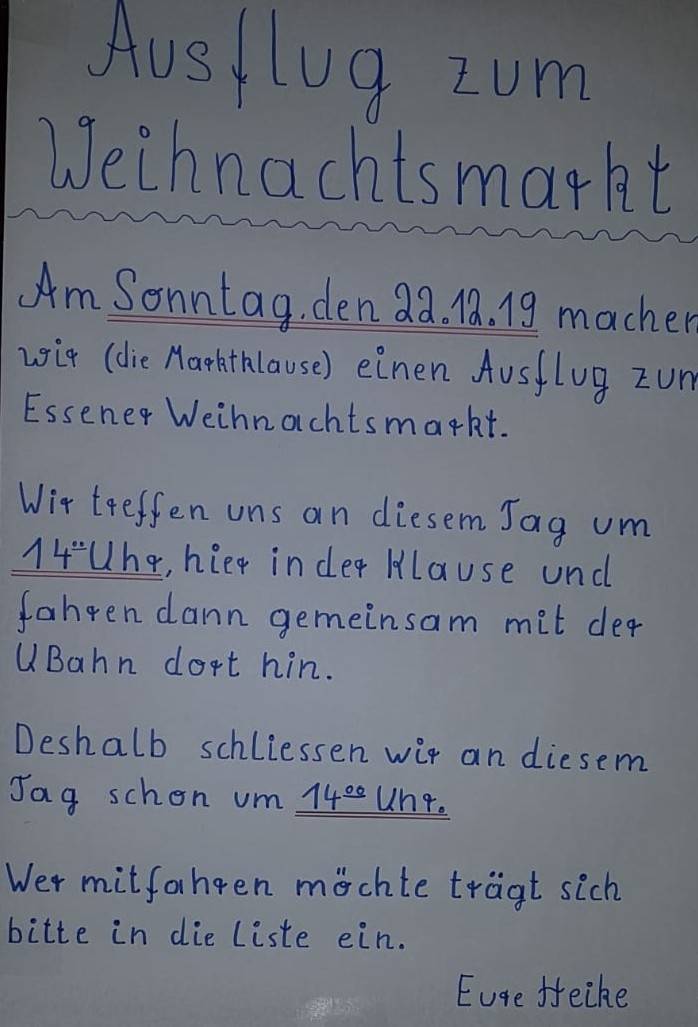 Ausflug zum
Weihnachtsmarkt
Am Sonntag, den 22.12.19 machen
wir (die Marktklause) einen Ausflug zum
Essener Weihnachtsmarkt.
Wir treffen uns an diesem Tag um
14⁰⁰ Uhr, hier in der Klause und
fahren dann gemeinsam mit der
UBahn dort hin.
Deshalb schliessen wir an diesem
Tag schon um 14⁰⁰ Uhr.
Wer mitfahren möchte trägt sich
bitte in die Liste ein.
Eure Heike